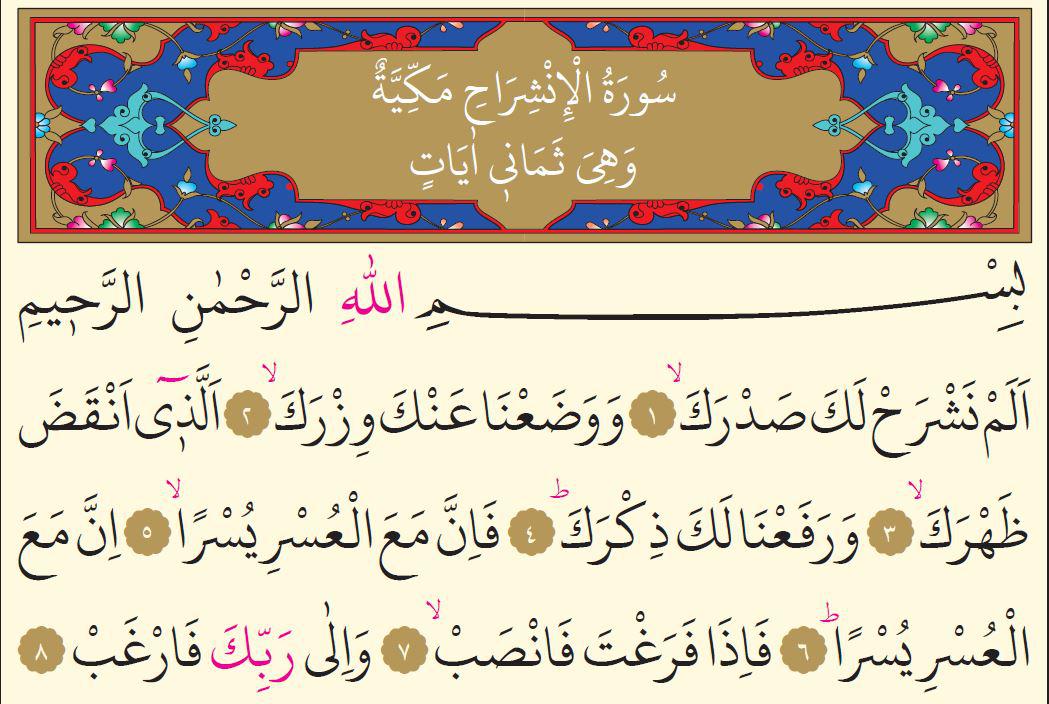 سُورَةُ الْإِنْشِرَاحِ مَكِّيَّةٌ
وَهِىَ ثَمَانٖى اٰيَاتٍ
بِسْمِ اللّٰهِ الرَّحْمٰنِ الرَّحٖيمِ
اَلَمْ نَشْرَحْ لَكَ صَدْرَكَۙ ﴿١﴾ وَوَضَعْنَا عَنْكَ وِزْرَكَۙ ﴿٢﴾ اَلَّذٖٓى اَنْقَضَ
ظَهْرَكَۙ ﴿٣﴾ وَرَفَعْنَا لَكَ ذِكْرَكَؕ ﴿٤﴾ فَاِنَّ مَعَ الْعُسْرِ يُسْرًاۙ ﴿٥﴾ اِنَّ مَعَ
الْعُسْرِ يُسْرًاؕ ﴿٦﴾ فَاِذَا فَرَغْتَ فَانْصَبْۙ ﴿٧﴾ وَاِلٰى رَبِّكَ فَارْغَبْ ﴿٨﴾